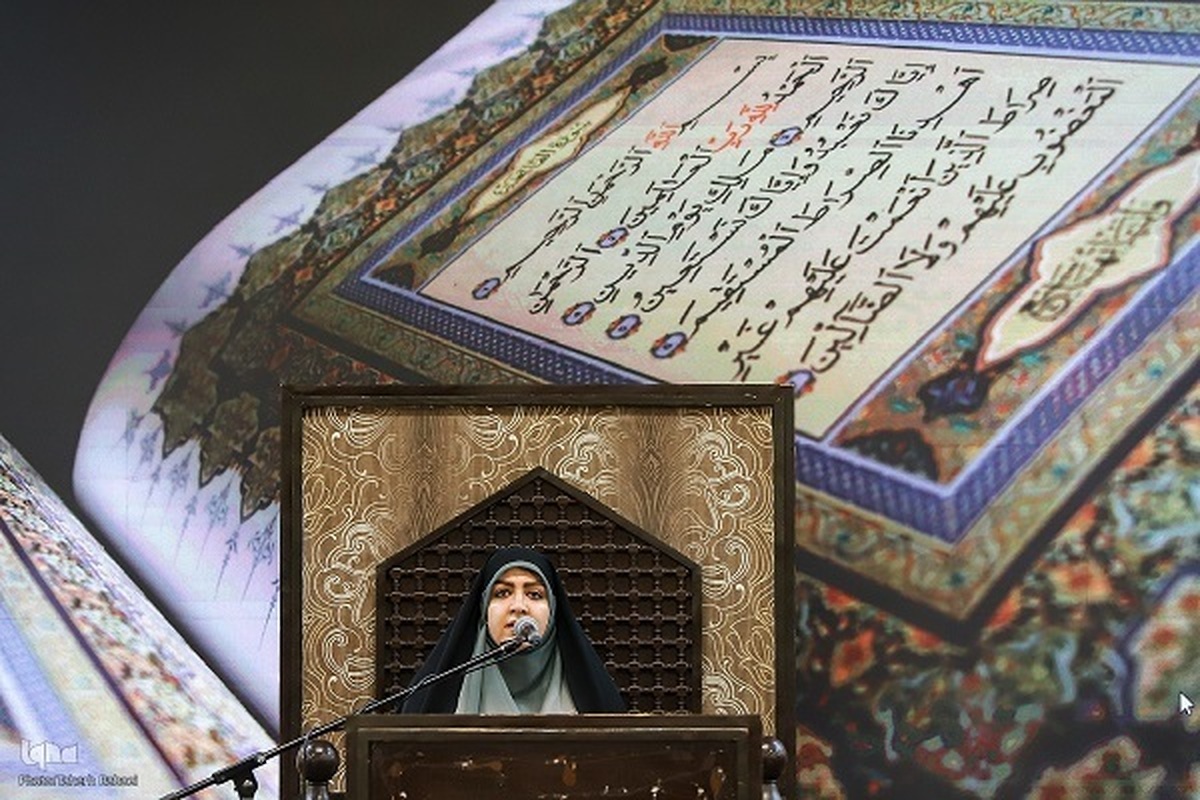 سُورَةُ الفَاتِحَةِ
بِسْمِ اللَّهِ الرَّحْمَٰنِ الرَّحِيمِ
الْحَمْدُ لِلَّهِ رَبِّ الْعَالَمِينَ الرَّحْمَٰنِ
الرَّحِيمِ مَالِكِ يَوْمِ الدِّينِ
إِيَّاكَ نَعْبُدُ وَإِيَّاكَ نَسْتَعِينُ
اهْدِنَا الصِّرَاطَ الْمُسْتَقِيمَ
صِرَاطَ الَّذِينَ أَنْعَمْتَ عَلَيْهِمْ غَيْرِ
الْمَغْضُوبِ عَلَيْهِمْ وَلَا الضَّالِّينَ
iqna